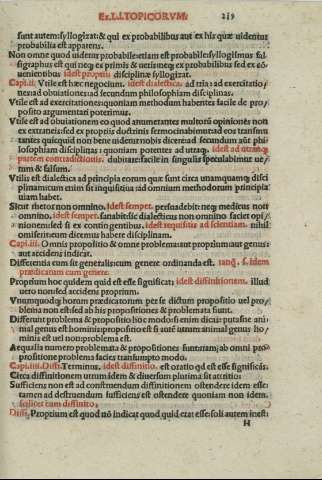 Ex.I.TOPICORVM: 219
sunt autem: syllogizat: & qui ex probabilibus aut ex his quæ uidentur
probabilia est apparens.
Non omne quod uidetur probabile: etiam est probabile: syllogismus fal
sigraphus est qui neq; ex primis & ueris: neq; ex probabilibus sed ex cō
uenientibus idest propriis disciplinæ syllogizat.
Capi.ii. Vtile est hæc negocium. idest dialectica. ad tria: ad exercitatio/
nem: ad obuiationes: ad secundum philosophiam disciplinas.
Vtile est ad exercitationes: quoniam methodum habentes facile de pro/
posito argumentari poterimus.
Vtile est ad obuiationem eo quod annumerantes multorū opiniones non
ex extraneis: sed ex propriis doctrinis sermocinabimur: ad eos transmu
tantes quicquid non bene uidentur nobis dicere: ad secundum aūt phi
losophiam disciplinas: quoniam potentes ad utraq; idest ad utranq;
partem contradictionis. dubitare: facile in singulis speculabimur ue/
rum & falsum.
Vtilis est dialectica ad principia eorum quæ sunt circa unamquamq; disci
plinam: cum enim sit inquisitiua iad omnium methodorum principia
uiam habet.
Sicut rhetor non omnino. idest semper. persuadebit: neq; medicus non
omnino. idest semper. sanabit: sic dialecticus non omnino faciet opi/
nionem: sed si ex contingentibus. idest requisitis ad scientiam. nihil
omiserit: eum dicemus habere disciplinam.
Capi.iii. Omnis propositio & omne problema: aut proprium: aut genus:
aut accidens indicat.
Differentia cum sit generalis: cum genere ordinanda est. tanq̄. s. idem
prædicatum cum genere.
Proprium hoc quidem quid est esse significat: idest diffinitionem. illud
uero non: sed accidens proprium.
Vnumquodq; horum prædicatorum per se dictum propositio uel pro/
blema non est: sed ab his propositiones & problemata fiunt.
Differunt problema & propositio hoc modo: si enim dicis putasne ani
mal genus est hominis: propositio est si autē utrum animal genus ho/
minis est uel non: problema est.
Aequalia numero problemata & propositiones sunt: nam ab omni pro
positione problema facies transumpto modo.
Capi.iiii. Diffi. Terminus. idest diffinitio. est oratio qd est esse significās:
Circa diffinitionem utrum idem & diuersum plurima sit attritio:
Sufficiens non est ad construendum diffinitionem ostendere idem esse:
tamen ad destruendum sufficiens est ostendere quoniam non idem.
scilicet cum diffinito.
Diffi. Proprium est quod nō indicat quod quid erat esse: soli autem inest:
H